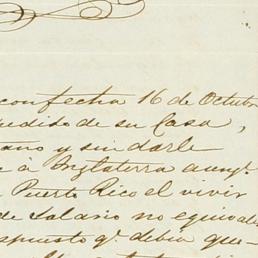 con fecha 16 de Octubr
edido de su Casa,
ano y sin darle
e à Inglaterra aunq.
Puerto Rico el vivir
de Salario no equival
spuesto q. debia que-